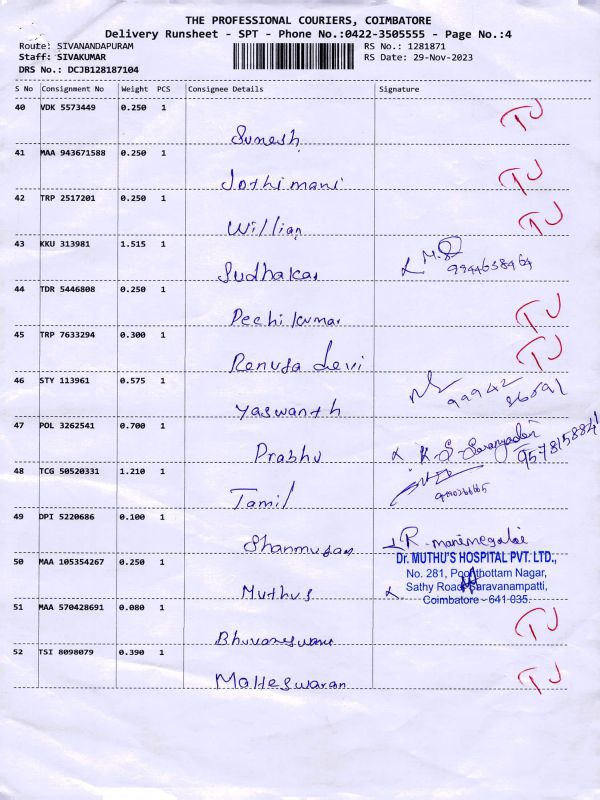 THE PROFESSIONAL COURIERS, COIMBATORE
Delivery Runsheet - SPT - Phone No.:0422-3505555 - Page No.:4
Route: SIVANANDAPURAM RS No.: 1281871
Staff: SIVAKUMAR RS Date: 29-Nov-2023
DRS No.: DCJB128187104
S No Consignment No Weight PCS Consignee Details Signature
40 VDK 5573449 0.250 1 TJ
Sumesh
41 MAA 943671588 0.250 1 TJ
Jothimani
42 TRP 2517201 0.250 1 TJ
Willian
43 KKU 313981 1.515 1
Sudhakar 9944638464
44 TDR 5446808 0.250 1 TJ
Pechikumar
45 TRP 7633294 0.300 1 TJ
Renuga Devi
46 STY 113961 0.575 1 99942 86891
Yaswanth
47 POL 3262541 0.700 1 K.S. 9578158841
Prabhu
48 TCG 50520331 1.210 1
Tamil
49 DPI 5220686 0.100 1
Shanmugan R. manimegalai
50 MAA 105354267 0.250 1 Dr. MUTHU'S HOSPITAL PVT. LTD.,
No. 281, Poonthottam Nagar,
Sathy Road, Saravanampatti,
Muthus Coimbatore - 641 035.
51 MAA 570428691 0.080 1 TJ
Bhuvaneswari
52 TSI 8098079 0.390 1 TJ
Maheswaran